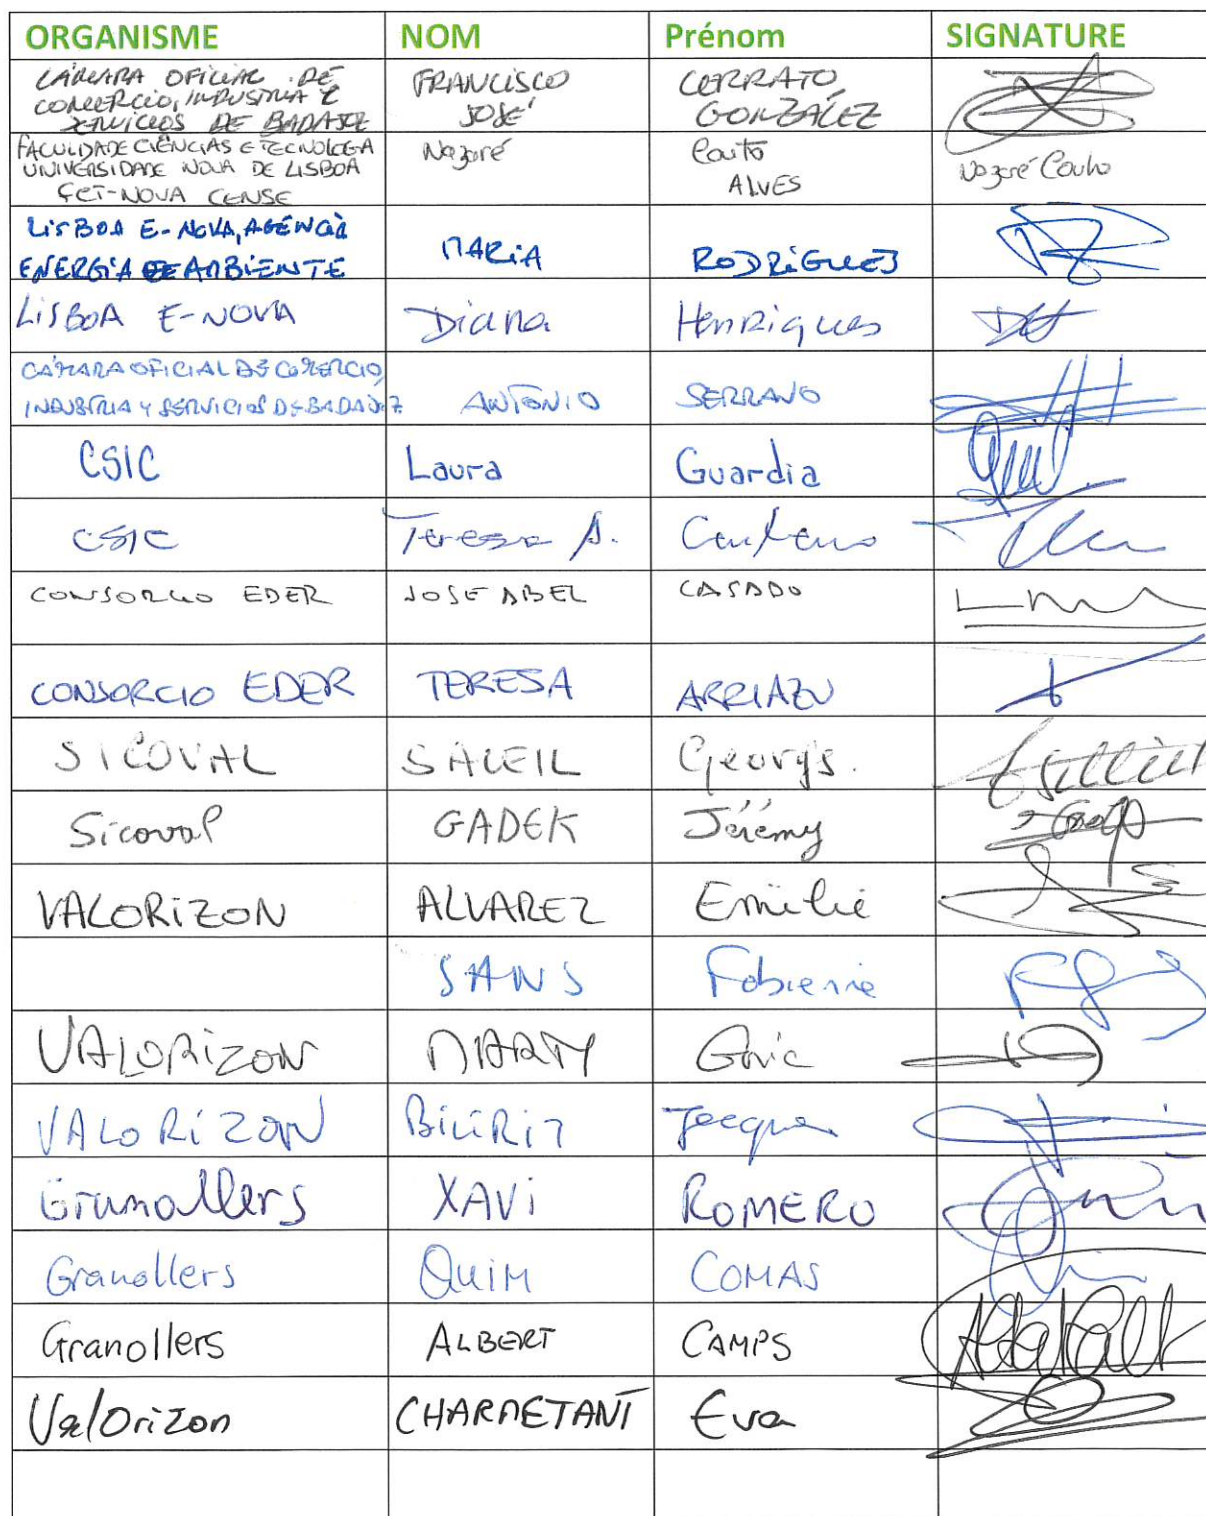 ORGANISME NOM Prénom SIGNATURE
CÁMARA OFICIAL DE
COMERCIO, INDUSTRIA Y
SERVICIOS DE BADAJOZ
FRANCISCO
JOSÉ
CERRATO
GONZÁLEZ
FACULDADE CIÊNCIAS E TECNOLOGIA
UNIVERSIDADE NOVA DE LISBOA
FCT-NOVA CENSE
Nazaré
Couto
ALVES
Nazaré Couto
LISBOA E-NOVA, AGÊNCIA
ENERGIA E AMBIENTE
MARIA
RODRIGUES
LISBOA E-NOVA Diana Henriques
CÁMARA OFICIAL DE COMERCIO,
INDUSTRIA Y SERVICIOS DE BADAJOZ
ANTONIO SERRANO
CSIC Laura Guardia
CSIC Teresa A. Centeno
CONSORCIO EDER JOSE ABEL CASADO
CONSORCIO EDER TERESA ARRIAZU
SICOVAL SALEIL Georges.
Sicoval GADEK Jérémy
VALORIZON ALVAREZ Emilie
SANS Fabienne
VALORIZON MARTY
VALORIZON Jacques
Granollers XAVI ROMERO
Granollers QUIM COMAS
Granollers ALBERT CAMPS
ValOrizon CHARMETANT Eva